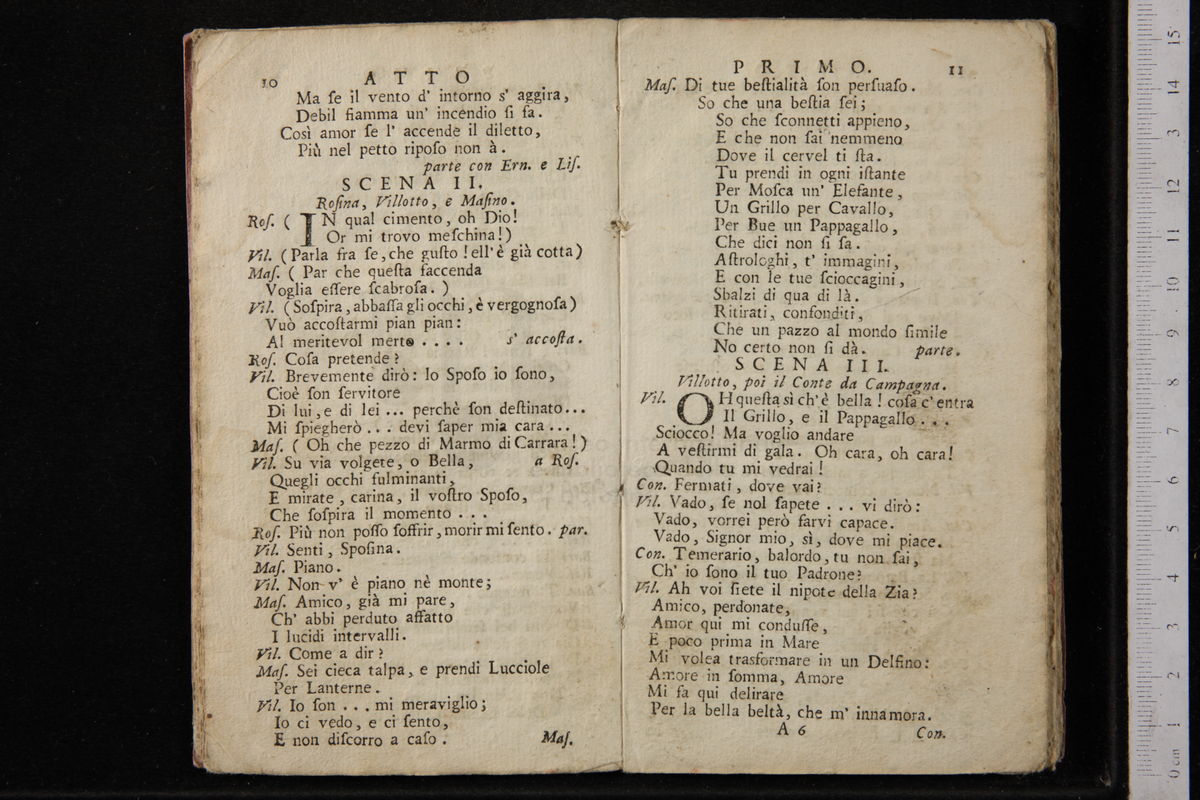 10 ATTO
Ma ſe il vento d' intorno s' aggira,
Debil fiamma un' incendio ſi fa.
Così amor ſe l' accende il diletto,
Più nel petto ripoſo non à.
parte con Ern. e Liſ.
SCENA II.
Roſina, Villotto, e Maſino.
Roſ. ( IN qual cimento, oh Dio!
Or mi trovo meſchina!)
Vil. (Parla fra ſe, che guſto! ell' è già cotta)
Maſ. ( Par che queſta faccenda
Voglia eſſere ſcabroſa. )
Vil. (Soſpira, abbaſſa gli occhi, è vergognoſa)
Vuò accoſtarmi pian pian:
Al meritevol merto . . . . s' accoſta.
Roſ. Coſa pretende?
Vil. Brevemente dirò: lo Spoſo io ſono,
Cioè ſon ſervitore
Di lui, e di lei ... perchè ſon deſtinato...
Mi ſpiegherò . . . devi ſaper mia cara ...
Maſ. ( Oh che pezzo di Marmo di Carrara!)
Vil. Su via volgete, o Bella, a Roſ.
Quegli occhi fulminanti,
E mirate, carina, il voſtro Spoſo,
Che ſoſpira il momento . . .
Roſ. Più non poſſo ſoffrir, morir mi ſento. par.
Vil. Senti, Spoſina.
Maſ. Piano.
Vil. Non v' è piano nè monte;
Maſ. Amico, già mi pare,
Ch' abbi perduto affatto
I lucidi intervalli.
Vil. Come a dir?
Maſ. Sei cieca talpa, e prendi Lucciole
Per Lanterne.
Vil. Io ſon . . . mi meraviglio;
Io ci vedo, e ci ſento,
E non diſcorro a caſo. Maſ.
PRIMO. 11
Maſ. Di tue beſtialità ſon perſuaſo.
So che una beſtia ſei;
So che ſconnetti appieno,
E che non ſai nemmeno
Dove il cervel ti ſta.
Tu prendi in ogni iſtante
Per Moſca un' Elefante,
Un Grillo per Cavallo,
Per Bue un Pappagallo,
Che dici non ſi ſa.
Aſtrologhi, t' immagini,
E con le tue ſcioccagini,
Sbalzi di qua di là.
Ritirati, confonditi,
Che un pazzo al mondo ſimile
No certo non ſi dà. parte.
SCENA III.
Villotto, poi il Conte da Campagna.
Vil. OH queſta sì ch' è bella! coſa c' entra
Il Grillo, e il Pappagallo . . .
Sciocco! Ma voglio andare
A veſtirmi di gala. Oh cara, oh cara!
Quando tu mi vedrai!
Con. Fermati, dove vai?
Vil. Vado, ſe nol ſapete . . . vi dirò:
Vado, vorrei però farvi capace.
Vado, Signor mio, sì, dove mi piace.
Con. Temerario, balordo, tu non ſai,
Ch' io ſono il tuo Padrone?
Vil. Ah voi ſiete il nipote della Zia?
Amico, perdonate,
Amor qui mi conduſſe,
E poco prima in Mare
Mi volea trasformare in un Delfino:
Amore in ſomma, Amore
Mi fa qui delirare
Per la bella beltà, che m' innamora.
A 6 Con.
15
14
13
12
11
10
9
8
7
6
5
4
3
2
1
0 cm